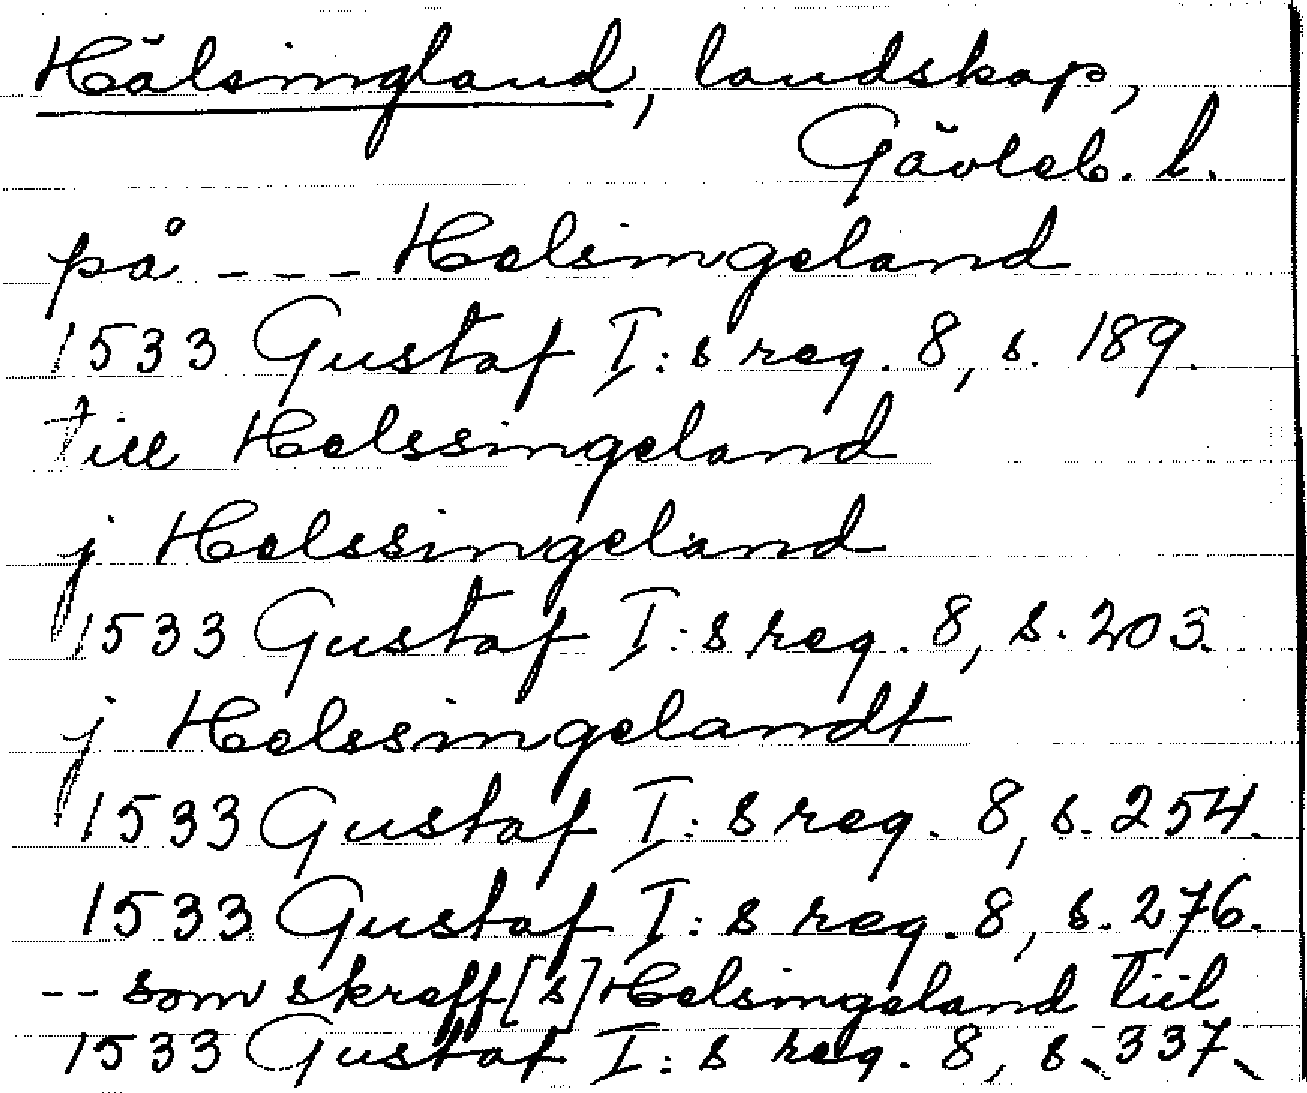 Hälsingland, landskap,
Gävleb. l.
på --- Helsingeland
1533 Gustaf I:s reg. 8, s. 189.
till Helssingeland
j Helssingeland
1533 Gustaf I:s reg. 8, s. 203.
j Helssingelandt
1533 Gustaf I:s reg. 8, s. 254.
1533 Gustaf I:s reg. 8, s. 276.
-- som skreff[s] Helsingeland tiil
1533 Gustaf I:s reg. 8, s. 337.